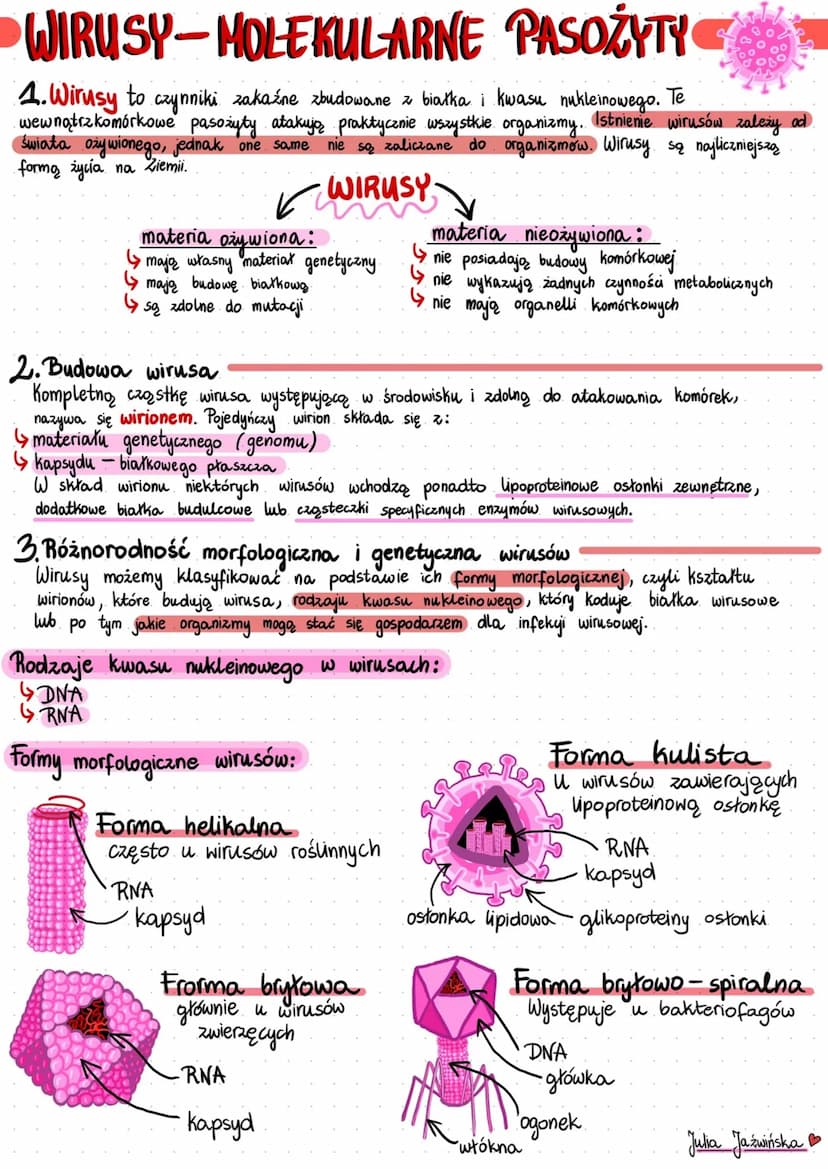 WIRUSY - MOLEKULARNE PASOŻYTY
1. Wirusy to czynniki zakaźne zbudowane z białka i kwasu nukleinowego. Te
wewnątrzkomórkowe pasożyty atakują praktycznie wszystkie organizmy. Istnienie wirusów zależy od
świata ożywionego, jednak one same nie są zaliczane do organizmów. Wirusy są najliczniejszą
formą życia na Ziemii.
WIRUSY
materia ożywiona:
↳ mają własny materiał genetyczny
↳ mają budowę białkową
↳ są zdolne do mutacji
materia nieożywiona:
↳ nie posiadają budowy komórkowej
↳ nie wykazują żadnych czynności metabolicznych
↳ nie mają organelli komórkowych
2. Budowa wirusa
Kompletną cząstkę wirusa występującą w środowisku i zdolną do atakowania komórek,
nazywa się wirionem. Pojedyńczy wirion składa się z:
↳ materiału genetycznego (genomu)
↳ kapsydu - białkowego płaszcza
W skład wirionu niektórych wirusów wchodzą ponadto lipoproteinowe osłonki zewnętrzne,
dodatkowe białka budulcowe lub cząsteczki specyficznych enzymów wirusowych.
3. Różnorodność morfologiczna i genetyczna wirusów
Wirusy możemy klasyfikować na podstawie ich formy morfologicznej, czyli kształtu
wirionów, które budują wirusa, rodzaju kwasu nukleinowego, który koduje białka wirusowe
lub po tym jakie organizmy mogą stać się gospodarzem dla infekcji wirusowej.
Rodzaje kwasu nukleinowego w wirusach:
↳ DNA
↳ RNA
Formy morfologiczne wirusów:
Forma helikalna
często u wirusów roślinnych
RNA
kapsyd
Forma kulista
U wirusów zawierających
lipoproteinową osłonkę
RNA
kapsyd
osłonka lipidowa
glikoproteiny osłonki
Frorma bryłowa
głównie u wirusów
zwierzęcych
RNA
kapsyd
Forma bryłowo-spiralna
Występuje u bakteriofagów
DNA
główka
ogonek
włókna
Julia Jaźwińska